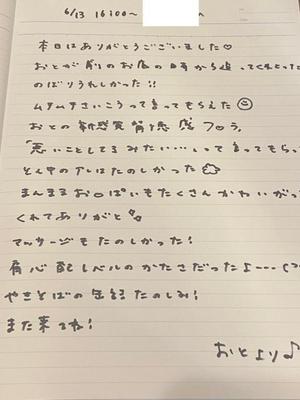 6/13 16:00〜
本日はありがとうございました♡
おとが前のお店の時から追ってくれてた
のばりうれしかった!!
ムチムチさいこうって言ってもらえた☺
おとの 敏感 背徳感 フロう。
「悪いことしてるみたい…って言ってもらっ
たのしかった
まんまるお〇ぱいもたくさんかわいがっ
くれてありがと
マッサージもたのしかった!
肩心配レベルのかたさだったよ---
やきそばの缶詰たのしみ!
また来てね!
おとより♪